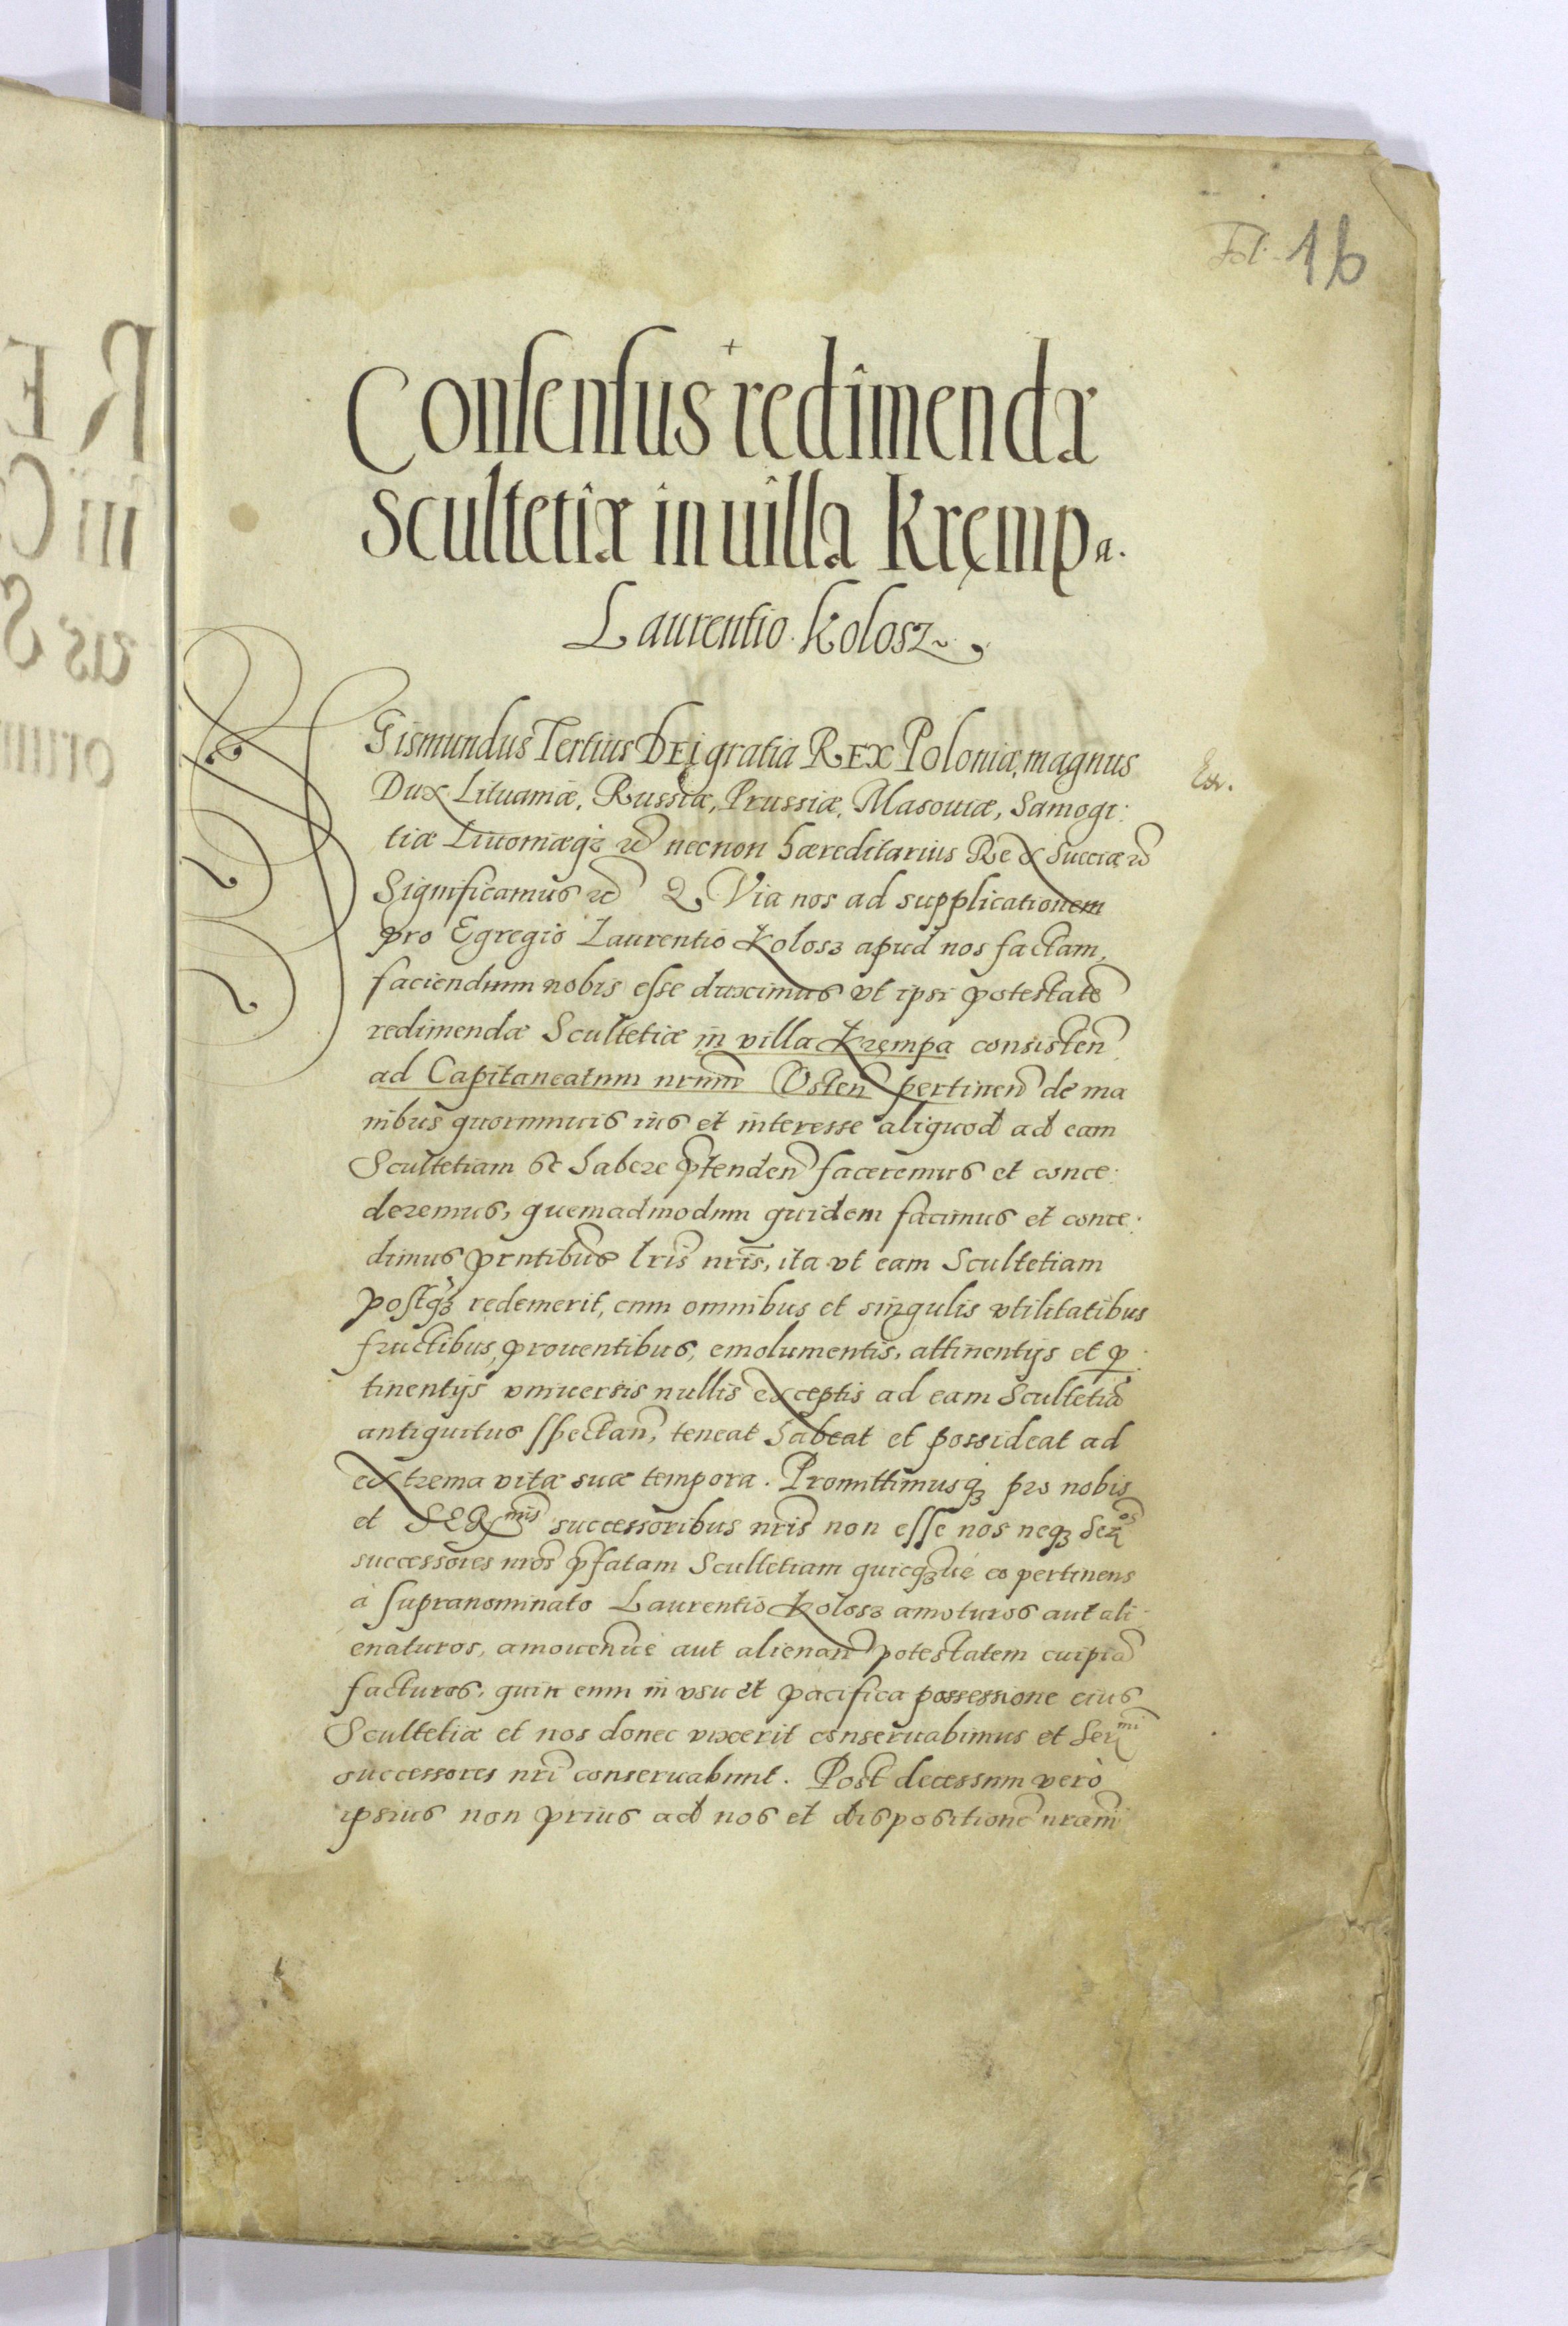 Fol. 16
Consensus redimendæ
Scultetiæ in uilla Kręmpa.
Laurentio Kolosz
Sigismundus Tertius DEI gratia REX Poloniæ, magnus
Dux Lituaniæ, Russiæ, Prussiæ, Masouiæ, Samogi:
tiæ Liuoniæq₃ etc necnon hæreditarius Rex Sueciæ etc
Significamus etc Quia nos ad supplicationem
pro Egregio Laurentio Kolosz apud nos factam,
faciendum nobis esse duximus vt ipsi potestatē
redimendæ Scultetiæ in villa Kręmpa consisteñ
ad Capitaneatum nrum̃ Osteñ pertineñ de ma
nibus quorumuis ius et interesse aliquod ad eam
Scultetiam se habere p̄tendeñ faceremus et conce:
deremus, quemadmodum quidem facimus et conce.
dimus pr̃ntibus lris̃ nris̃, ita vt eam Scultetiam
postq̃₃ redemerit, cum omnibus et singulis vtilitatibus
fructibus, prouentibus, emolumentis, attinentijs et ꝑ
tinentijs vniuersis nullis exceptis ad eam Scultetiã
antiquitus spectañ, teneat habeat et possideat ad
extrema vitæ suæ tempora. Promittimusq₃ pro nobis
et SERmis successoribus nris̃ non esse nos neq₃ Seros
successores nros̃ p̄fatam Scultetiam quicq₃ue eo pertinens
à supranominato Laurentio Kolosz amoturos aut ali
enaturos, amouenue aut alienañ potestatem cuipiã
facturos, quin eum in vsu et pacifica possessione eius
Scultetiæ et nos donec vixerit conseruabimus et Sermi
successores nri̇̃ conseruabunt. Post decessum verò
ipsius non prius ad nos et dispositionē nram̃